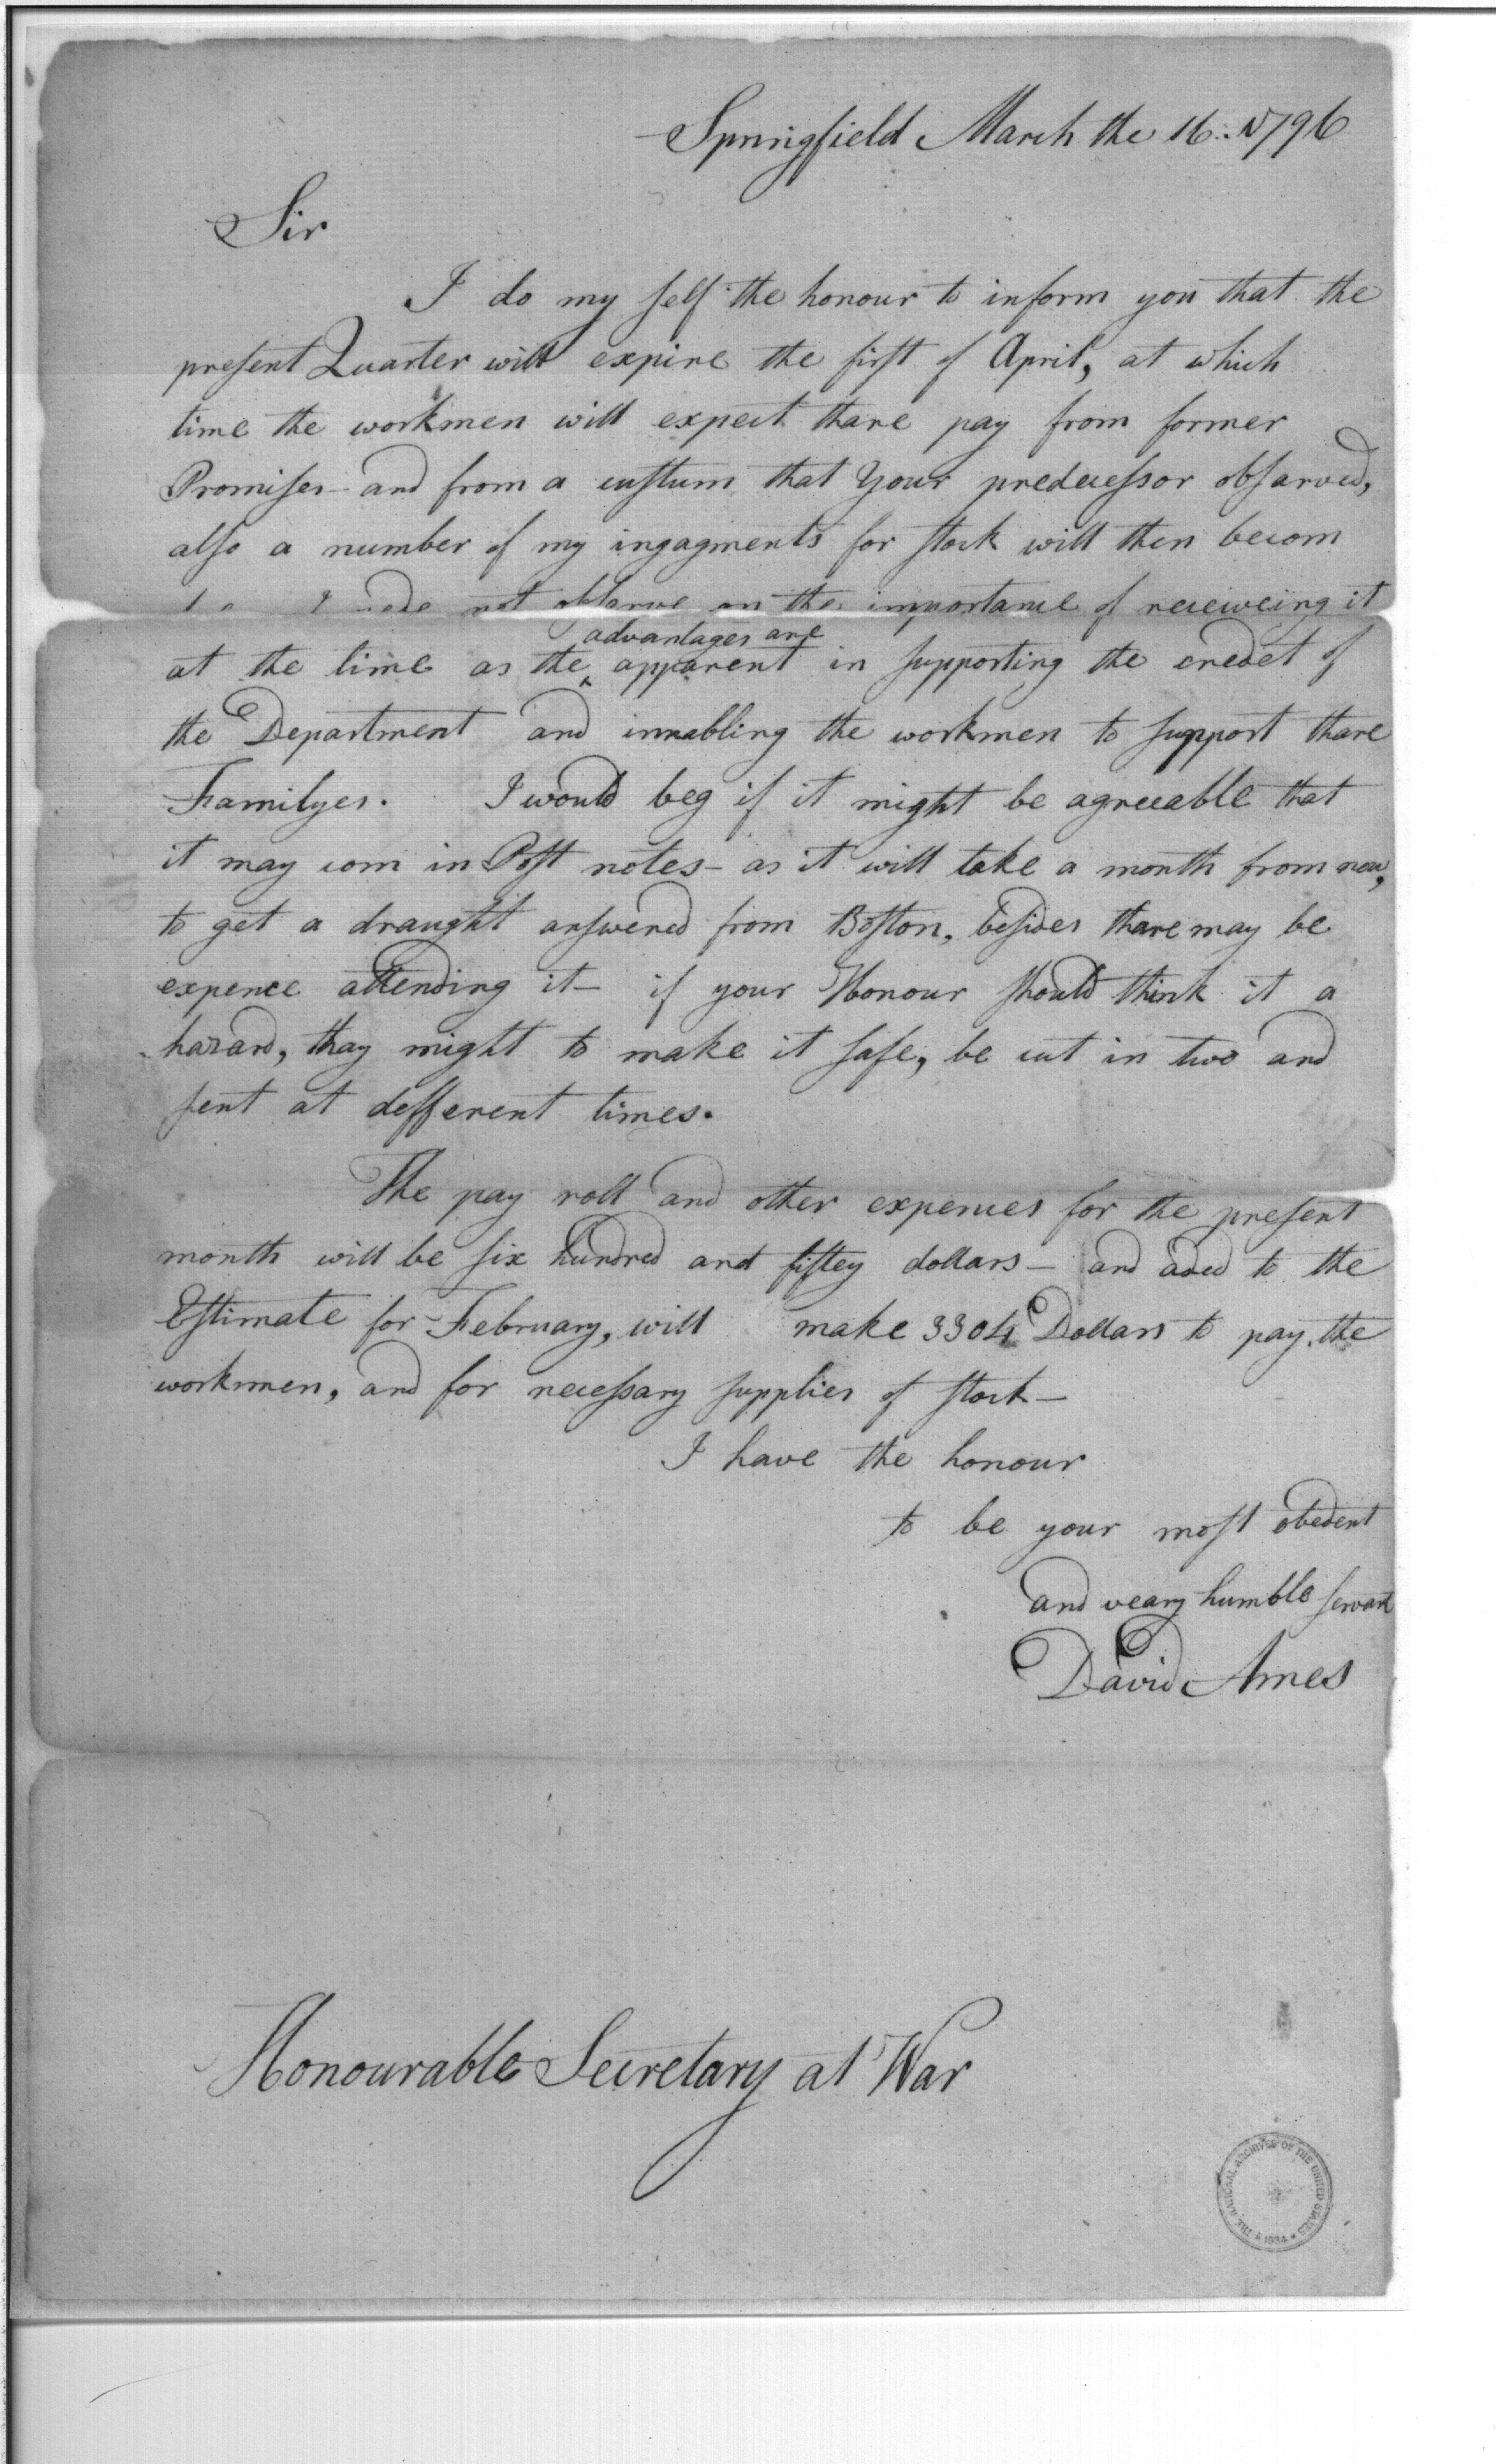 Springfield March the 16. 1796
Sir
I do my self the honour to inform you that the
present Quarter will expire the first of April, at which
time the workmen will expect thare pay from former
Promises - and from a custum that Your predecessor obsarved,
also a number of my ingagments for stock will then becom
not obsarve on the importance of receiveing it
advantages are
at the time as the ‸ apparent in supporting the credet of
the Department and innabling the workmen to support thare
Familyes. I would beg if it might be agreeable that
it may com in Post notes - as it will take a month from now,
to get a draught answered from Boston, besides thare may be
expence attending it - if your Honour should think it a
hazard, thay might to make it safe, be cut in two and
sent at defferent times.
The pay roll and other expences for the present
month will be six hundred and fiftey dollars - and aded to the
Estimate for February, will make 3304 Dollars to pay the
workmen, and for necessary supplies of stock -
I have the honour
to be your most obedent
and veary humble servant
David Ames
Honourable Secretary at War
THE NATIONAL ARCHIVES OF THE UNITED STATES
1934